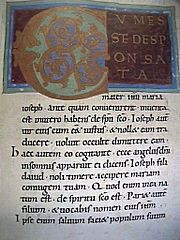 CVMES
SEDESPON
SATA
mater ihu maria
ioseph. Ante quam convenirent inventa
est in utero habens de spu sco. Ioseph aut
vir eius cum eet iustus & nollet eam tra
ducere. voluit occulte dimittere eam.
Haec autem eo cogitante. ecce angelus dni
in somnis apparuit ei dicens. Ioseph fili
david. noli timere accipere mariam
coniugem tuam. Quod enim in ea na
tum est. de spiritu sco est. Pariet aute
filium. & vocabis nomen eius ihm.
Ipse enim salvum faciet populum suum